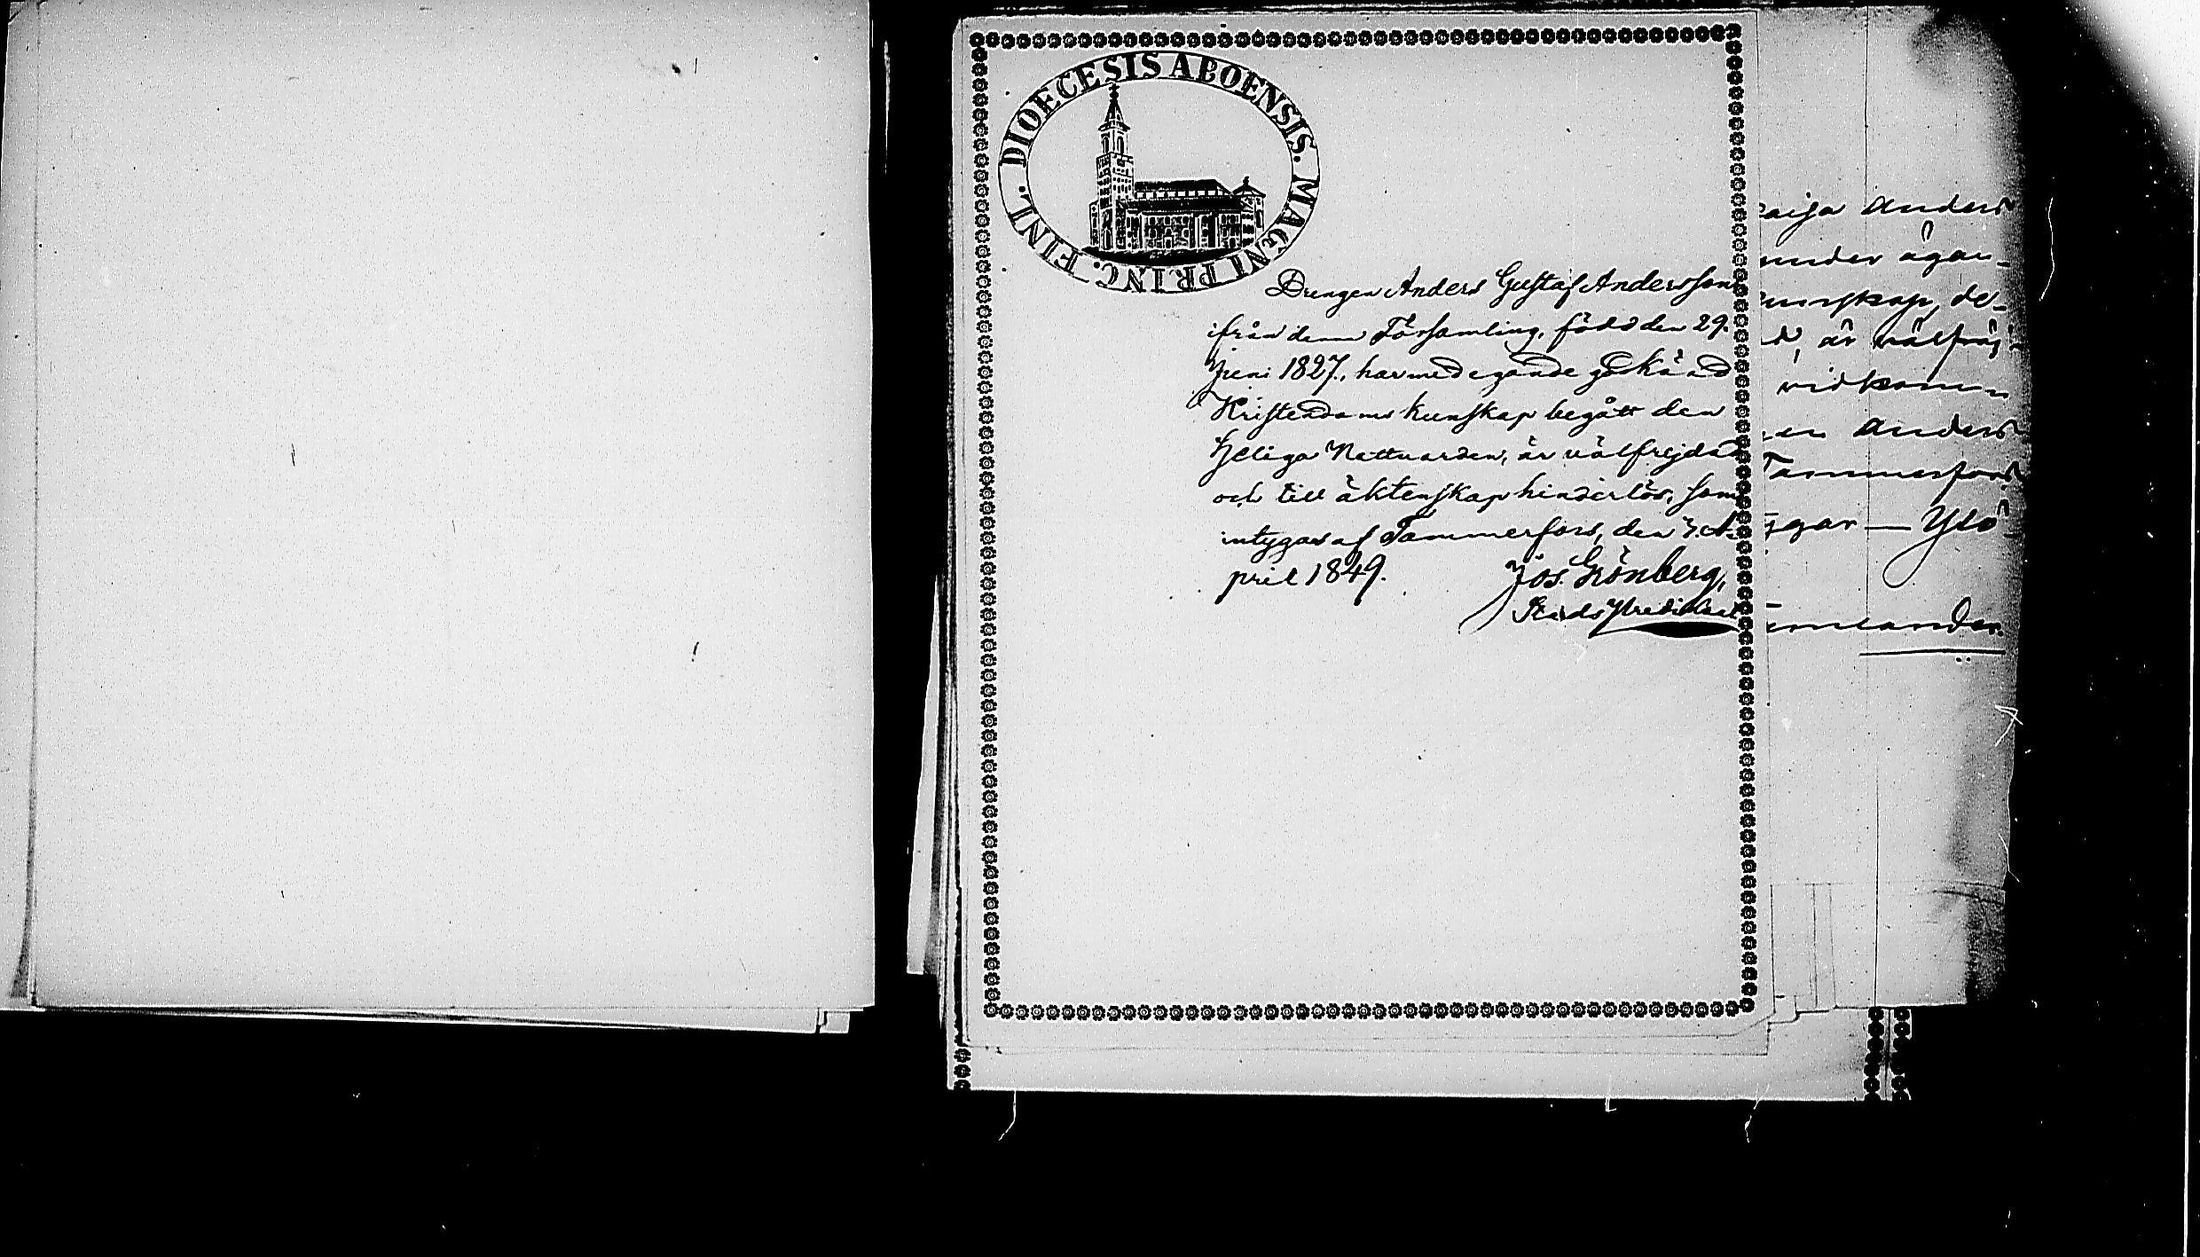 DIOECESIS ABOENSIS. MAGNI PRINC. FINL.
Drengen Anders Gustaf Andersson
ifrån denna Församling, född den 29.
Juni 1827, har med egande godkänd
Kristendoms kunskap begått den
Heliga Nattvarden, är välfrejdad
och till äktenskap hinderlös, som
intygas af Tammerfors, den 7. A-
pril 1849.
Jos. Grönberg,
Stads Predikant
caija Anders
under ägan-
unskap, de-
d, är välfräj-
vidkom-
en Anders
Tammerfors
ygar — Ylö